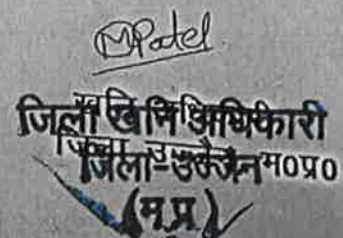 MPatel
जिला खनि अधिकारी
जिला-उज्जैन म०प्र०
(म.प्र.)